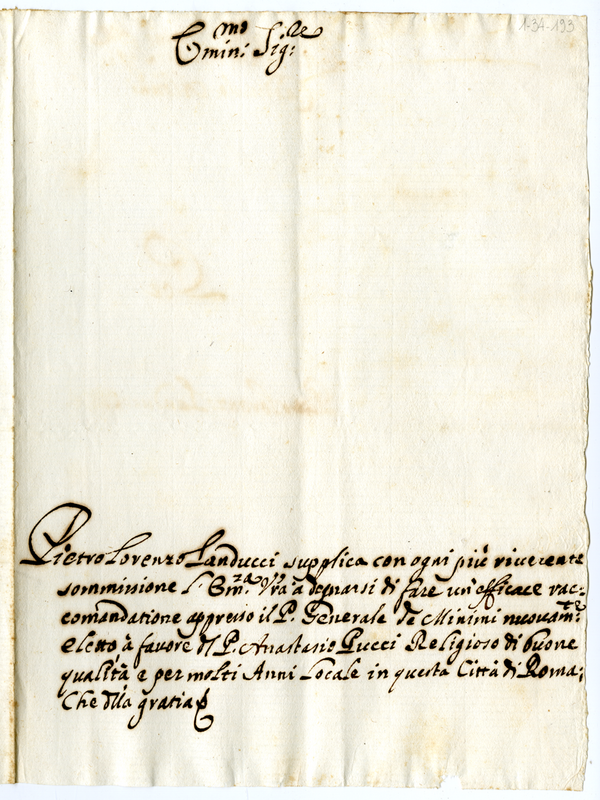 1-34-193
Emin:mo Sig:re
Pietro Lorenzo Landucci supplica con ogni più riverente
sommissione l'Em.za Vra à degnarsi di fare un'efficace rac-
comandatione appresso il P. Generale de Minimi nuovam:te
eletto à favore dl P. Anastasio Pucci Religioso di buone
qualità e per molti Anni Locale in questa Città di Roma;
Che dlla gratia